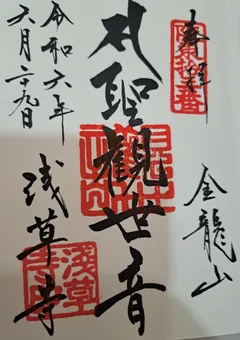 奉拝
坂東十三番
金龍山
聖観世音
浅草寺
令和六年
六月二十九日